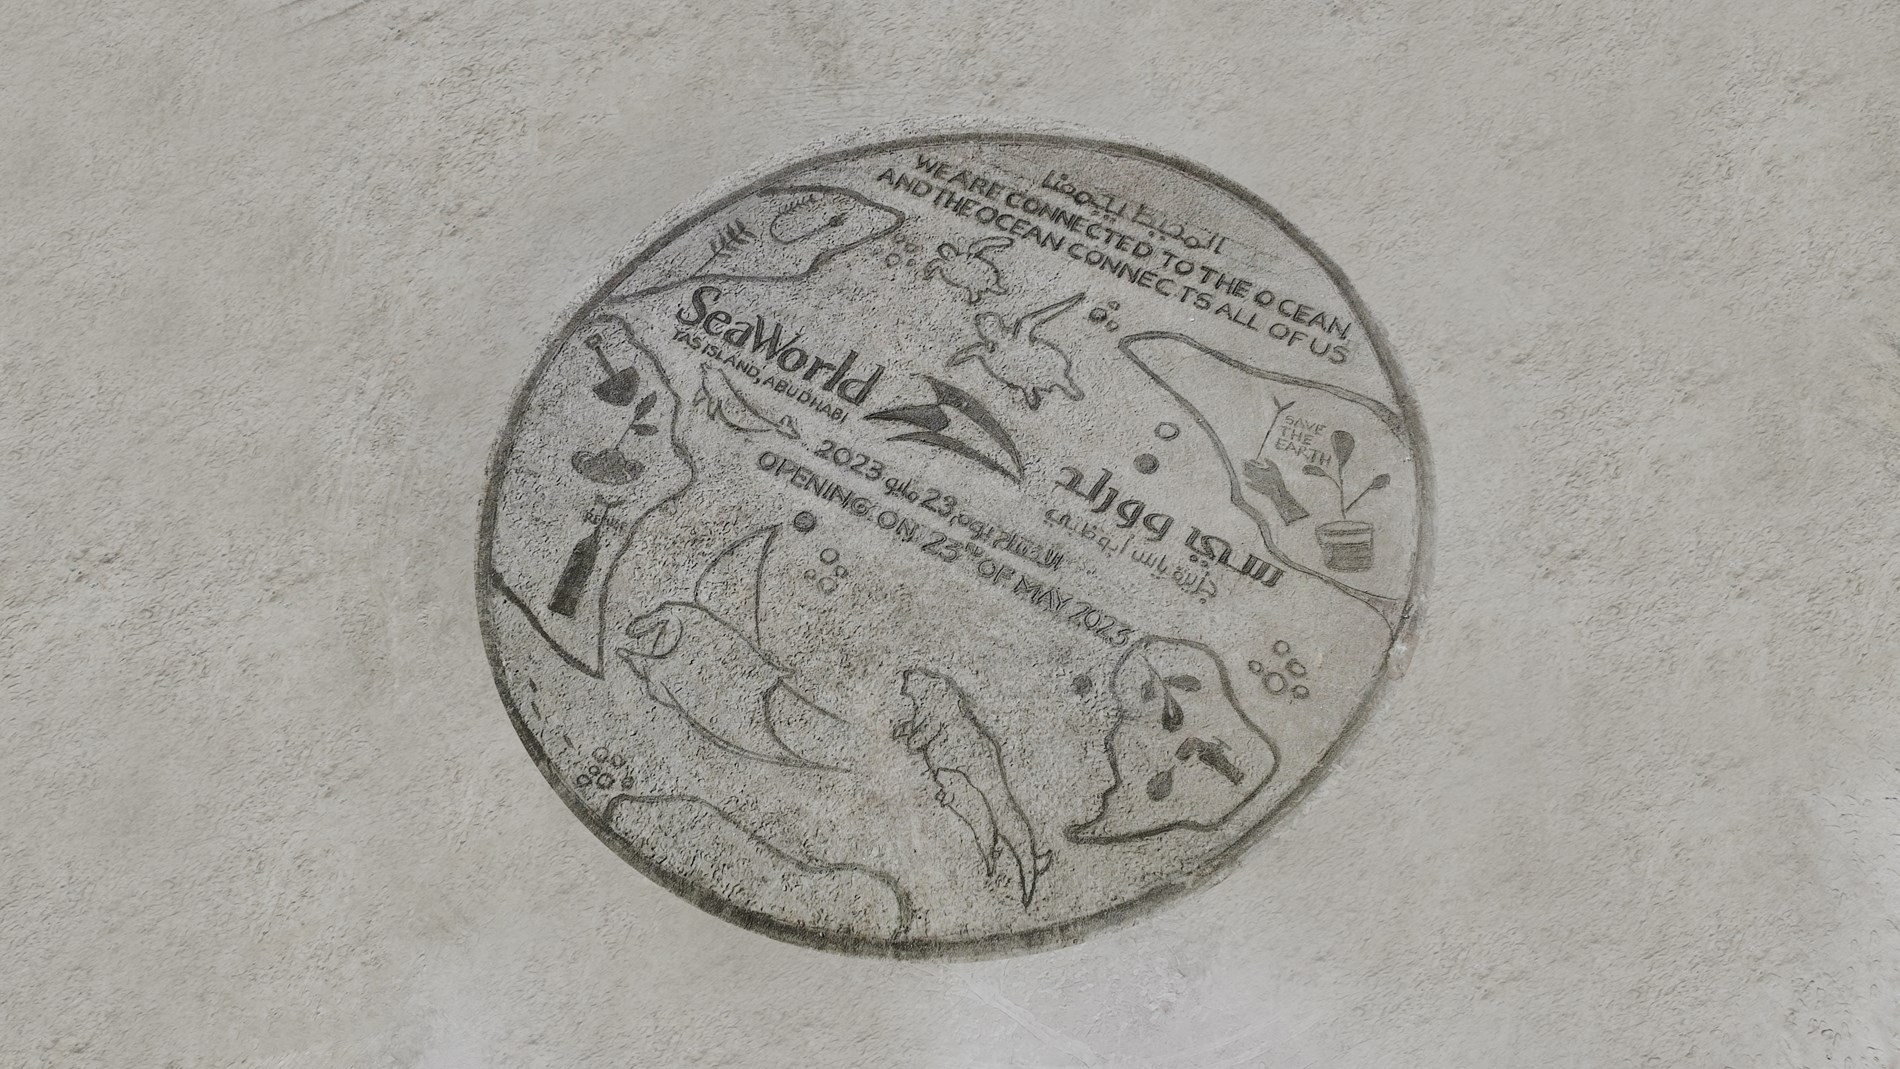 المحيط يجمعنا
WE ARE CONNECTED TO THE OCEAN,
AND THE OCEAN CONNECTS ALL OF US
SeaWorld
YAS ISLAND, ABU DHABI
سي وورلد
جزيرة ياس أبوظبي
23 مايو 2023
OPENING ON 23RD OF MAY 2023
SAVE
THE
EARTH